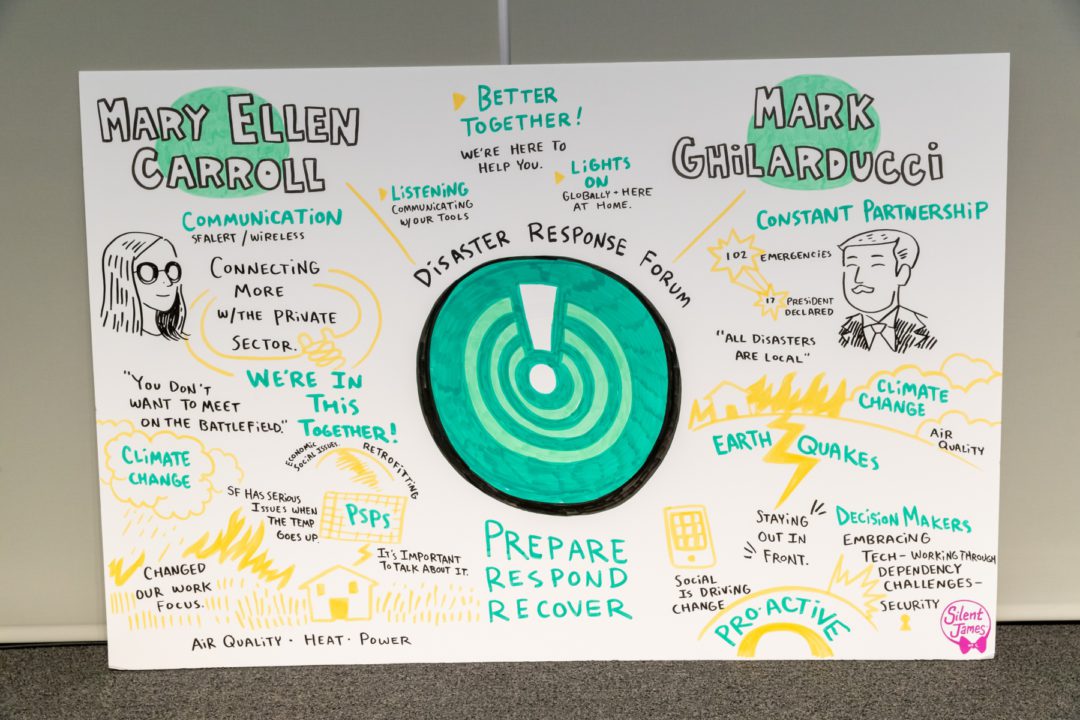 MARY ELLEN
CARROLL
COMMUNICATION
SFALERT / WIRELESS
CONNECTING
MORE
W/THE PRIVATE
SECTOR.
"YOU DON'T
WANT TO MEET
ON THE BATTLEFIELD."
WE'RE IN
THIS
TOGETHER!
CLIMATE
CHANGE
ECONOMIC
SOCIAL ISSUES.
RETROFITTING
SF HAS SERIOUS
ISSUES WHEN
THE TEMP
GOES UP.
PSPS
IT'S IMPORTANT
TO TALK ABOUT IT.
CHANGED
OUR WORK
FOCUS.
AIR QUALITY · HEAT · POWER
BETTER
TOGETHER!
WE'RE HERE TO
HELP YOU.
LISTENING
COMMUNICATING
W/OUR TOOLS
LIGHTS
ON
GLOBALLY + HERE
AT HOME.
DISASTER RESPONSE FORUM
PREPARE
RESPOND
RECOVER
MARK
GHILARDUCCI
CONSTANT PARTNERSHIP
102 EMERGENCIES
17 PRESIDENT
DECLARED
"ALL DISASTERS
ARE LOCAL"
CLIMATE
CHANGE
AIR
QUALITY
EARTH QUAKES
STAYING
OUT IN
FRONT.
SOCIAL
IS DRIVING
CHANGE
PRO·ACTIVE
DECISION MAKERS
EMBRACING
TECH- WORKING THROUGH
DEPENDENCY
CHALLENGES-
SECURITY
Silent
James